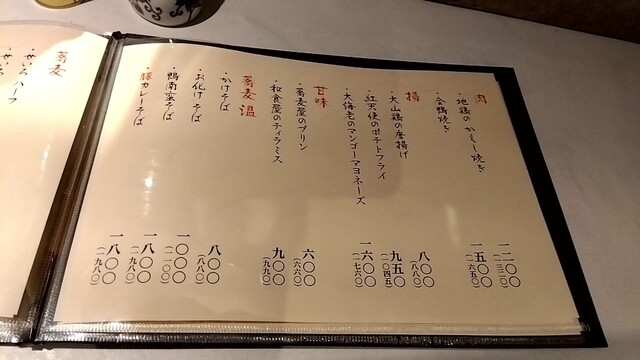 肉
・地鶏のかえし焼き 一二〇〇 (一三二〇)
・合鴨焼き 一五〇〇 (一六五〇)
揚
・大山鶏の唐揚げ 八〇〇 (八八〇)
・紅天使のポテトフライ 九五〇 (一〇四五)
・大海老のマンゴーマヨネーズ 一六〇〇 (一七六〇)
甘味
・蕎麦屋のプリン 六〇〇 (六六〇)
・和食屋のティラミス 九〇〇 (九九〇)
蕎麦 温
・かけそば 八〇〇 (八八〇)
・お化けそば 一〇〇〇 (一一〇〇)
・鴨南蛮そば 一八〇〇 (一九八〇)
・豚カレーそば 一八〇〇 (一九八〇)
蕎麦
・せいろハーフ
・せいろ